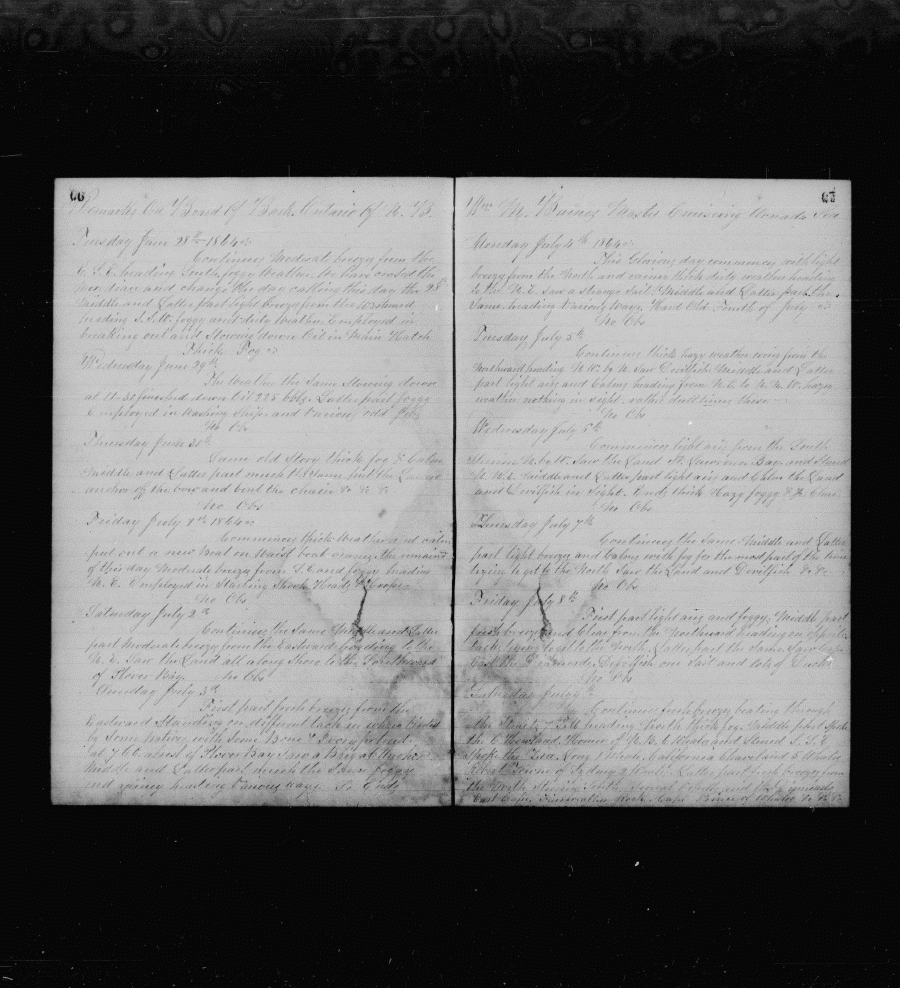 66
Remarks On Board Of Bark Ontario Of N. B.
Tuesday June 28th 1864
Continues Moderate breezes from the
E. S. E. heading South foggy Weather. We have crossed the
Meridian and change the day calling this day the 28th
Middle and Latter part light breeze from the Westward
heading S.S.W. foggy and dirty Weather. Employed in
breaking out and Stowing down Oil in Main Hatch
Thick Fog
Wednesday June 29th
The Weather the Same Stowing down
at 11-30 finished down Oil 225 bbls. Latter part foggy
Employed in Washing Ship and various odd jobs
No Obs
Thursday June 30th
Same old Story thick fog & Calm
Middle and Latter part much the Same bent the Larboard
anchor off the bow and bent the chain &c &c &c
No Obs
Friday July 1st 1864
Commences thick Weather and calm
put out a new Boat on Waist boat cranes the remainder
of this day Moderate breeze from S.E. and foggy heading
N. E. Employed in Starting Shook Heads & Hoops
No Obs
Saturday July 2nd
Continues the Same Middle and Latter
part Moderate breeze from the Eastward heading to the
N. E. Saw the Land all along Shore to the Northward
of Plover Bay. No Obs
Sunday July 3rd
First part fresh breeze from the
Eastward Standing on different tack in Shore Boarded
by Some natives with Some Bone & Ivory
at 7 bC abrest of Plover Bay Saw a Bark at Anchor
Middle and Latter part much the Same foggy
and rainy heading various ways So Ends
67
Wm. M. Barnes Master Cruising Towards
Monday July 4th 1864
This Glorious day commences with light
breeze from the North and rainy thick dirty weather heading
to the N.E. Saw a strange Sail. Middle and Latter part the
Same heading Various Ways. Hard Old Fourth of July
No Obs
Tuesday July 5th
Continues thick hazy weather wind from the
Northward heading N. W. by N. Saw Devilfish Middle and Latter
part light airs and Calms heading from N. E. to N. N. W. hazy
weather nothing in Sight. rather dull times these
No Obs
Wednesday July 6th
Commences light airs from the South
Steering N. by W. Saw the Land St. Lawrence Bay and Steered
N. N. E. Middle and Latter part light airs and Calm the Land
and Devilfish in Sight. Ends thick Hazy foggy
No Obs
Thursday July 7th
Continues the Same Middle and Latter
part light breeze and Calms with fog for the most part of the time
trying to get to the North. Saw the Land and Devilfish &c &c
No Obs
Friday July 8th
First part light airs and foggy. Middle part
fresh breeze and Clear from the Northward heading on different
tack trying to get to the North. Latter part the Same. Saw
East the Diamonds Devilfish one Sail and lots of Ducks
No Obs
Saturday July 9th
Continues fresh breeze beating through
the Straits & Still heading North thick fog. Middle part Spoke
the C. Howland Homer of N. B. 6 Whales and Steered S. S. E.
Spoke the California Cleaveland 5 Whales
of Sydney Latter part fresh breeze from
the North
East Cape